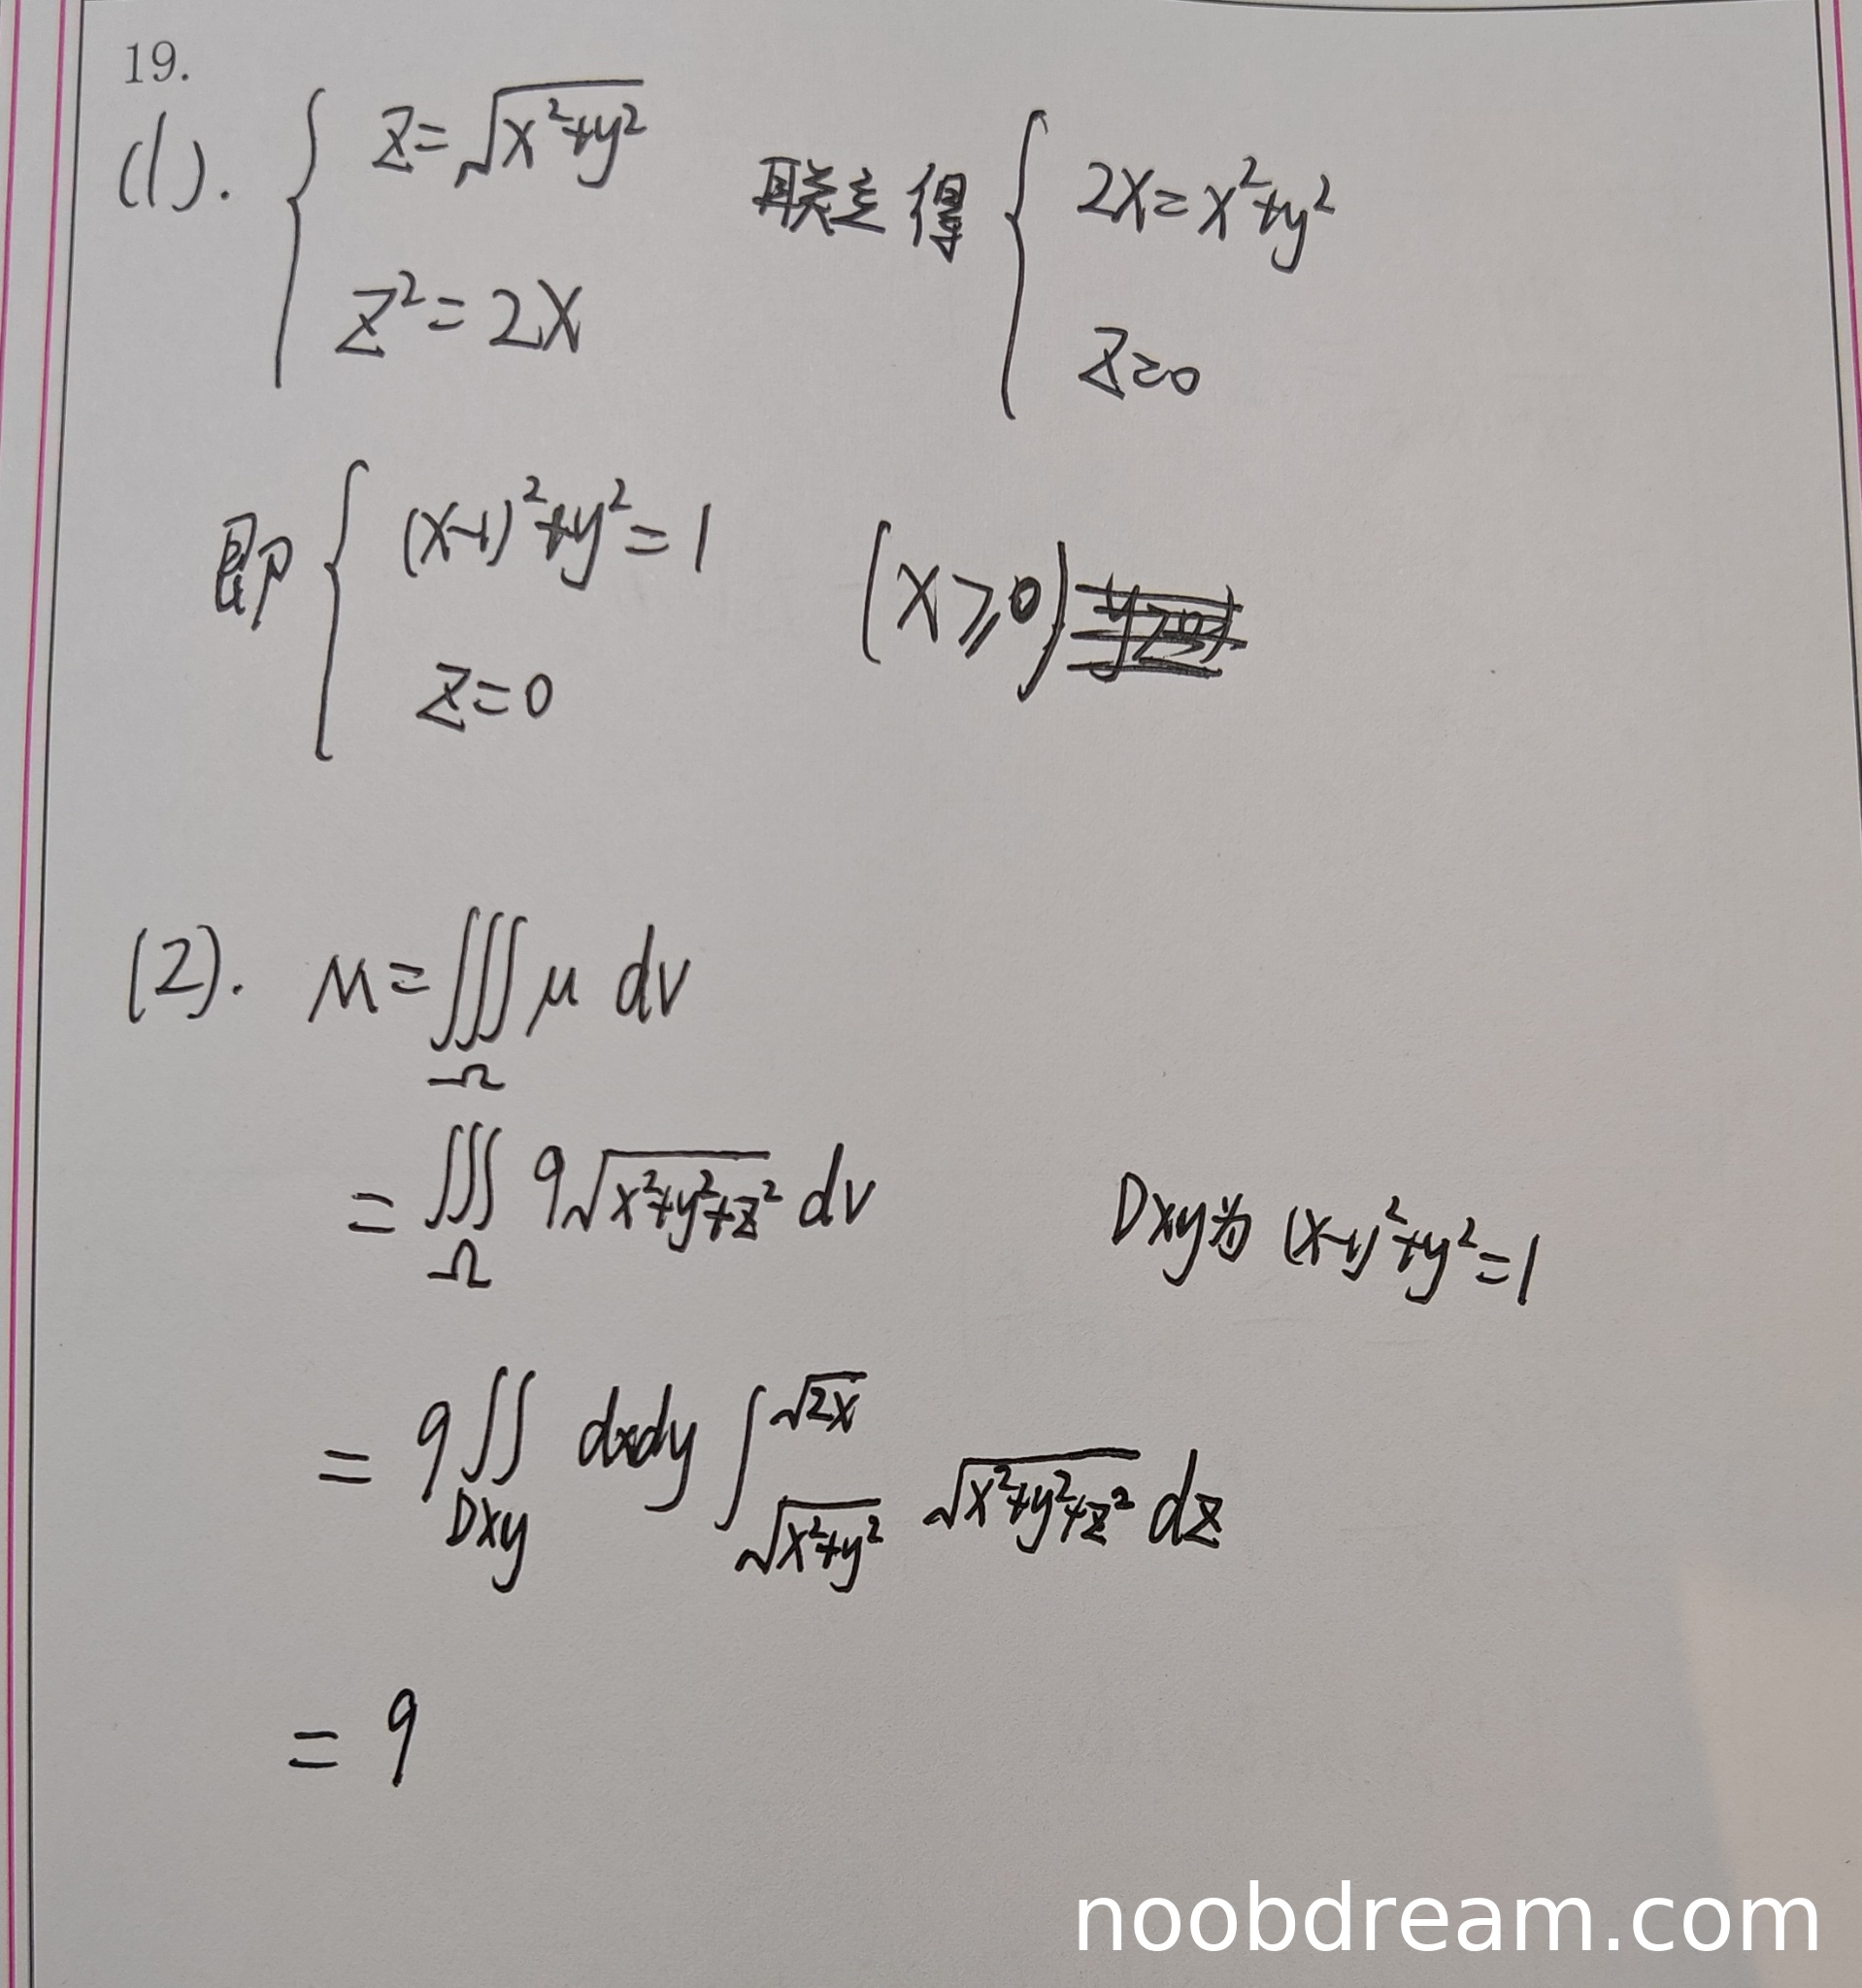 19.
(1). { z=√(x²+y²) 联立得 { 2x=x²+y²
z²=2x z=0
即 { (x-1)²+y²=1 (x≥0)
z=0
(2). M=∭_Ω μ dv
=∭_Ω 9√(x²+y²+z²) dv Dxy为 (x-1)²+y²=1
=9∬_Dxy dxdy ∫_√(x²+y²)^√(2x) √(x²+y²+z²) dz
=9
noobdream.com